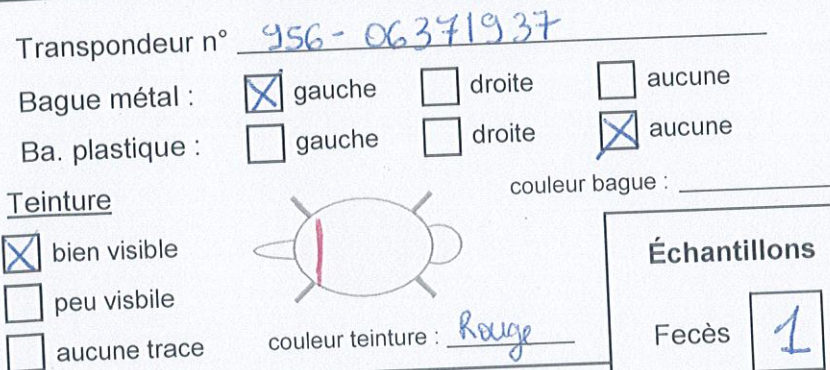 Transpondeur n° 956-06371937
Bague métal : gauche droite aucune
Ba. plastique : gauche droite aucune
couleur bague :
Teinture
bien visible
peu visbile
aucune trace
couleur teinture : Rouge
Échantillons
Fecès 1